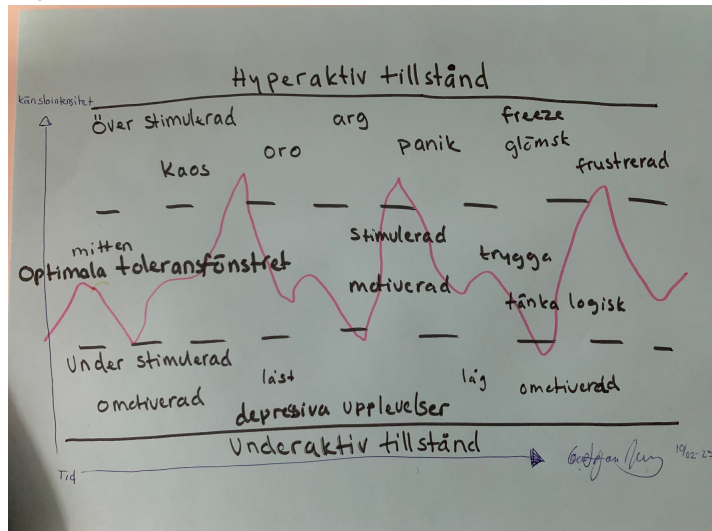 Hyperaktiv tillstånd
känslointensitet
över stimulerad
arg
freeze
glömsk
kaos
oro
panik
frustrerad
mitten
optimala toleransfönstret
stimulerad
motiverad
trygga
tänka logisk
Under stimulerad
omotiverad
låst
depressiva upplevelser
låg
omotiverdd
Underaktiv tillstånd
Tid